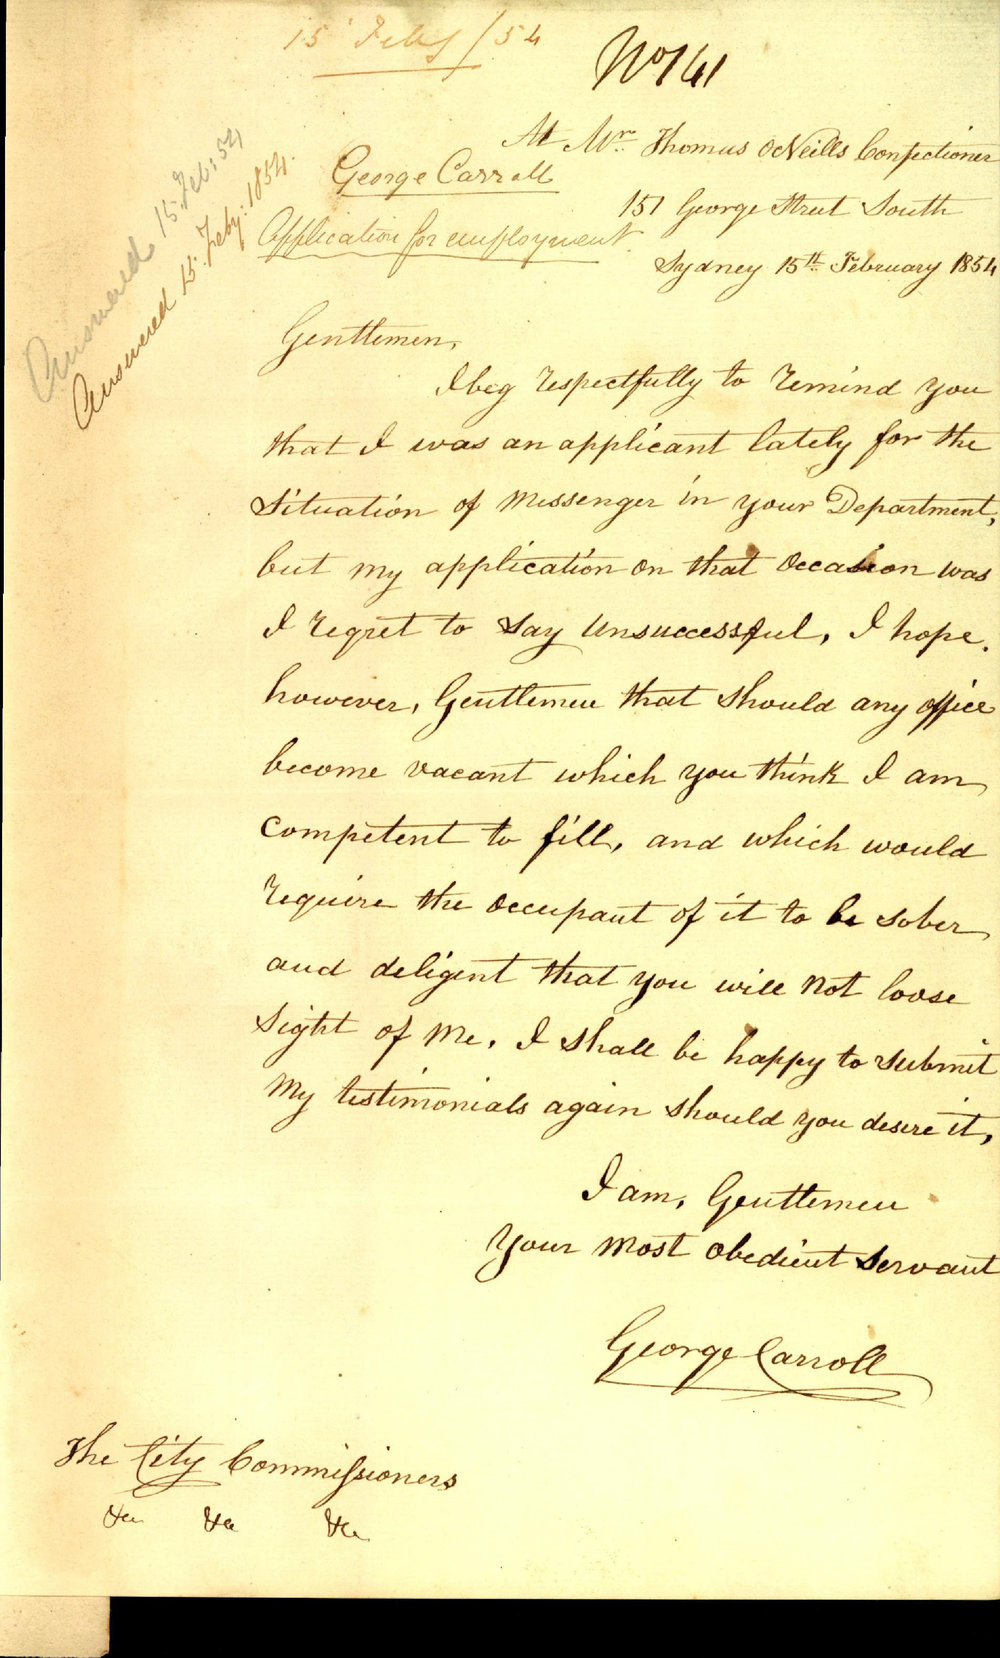 15 Feby / 54
No 141
At Mr. Thomas O'Neills Confectioner
George Carroll
151 George Street South
Application for employment
Sydney 15th February 1854
Answered 15. Feb: 54
Answered 15. Feby: 1854.
Gentlemen,
I beg respectfully to remind you
that I was an applicant lately for the
Situation of Messenger in your Department,
but my application on that occasion was
I regret to say unsuccessful, I hope,
however, Gentlemen that should any office
become vacant which you think I am
Competent to fill, and which would
require the occupant of it to be sober
and deligent that you will not loose
sight of me. I shall be happy to submit
my testimonials again should you desire it,
I am, Gentlemen
Your most obedient Servant
George Carroll
The City Commissioners
&c &c &c